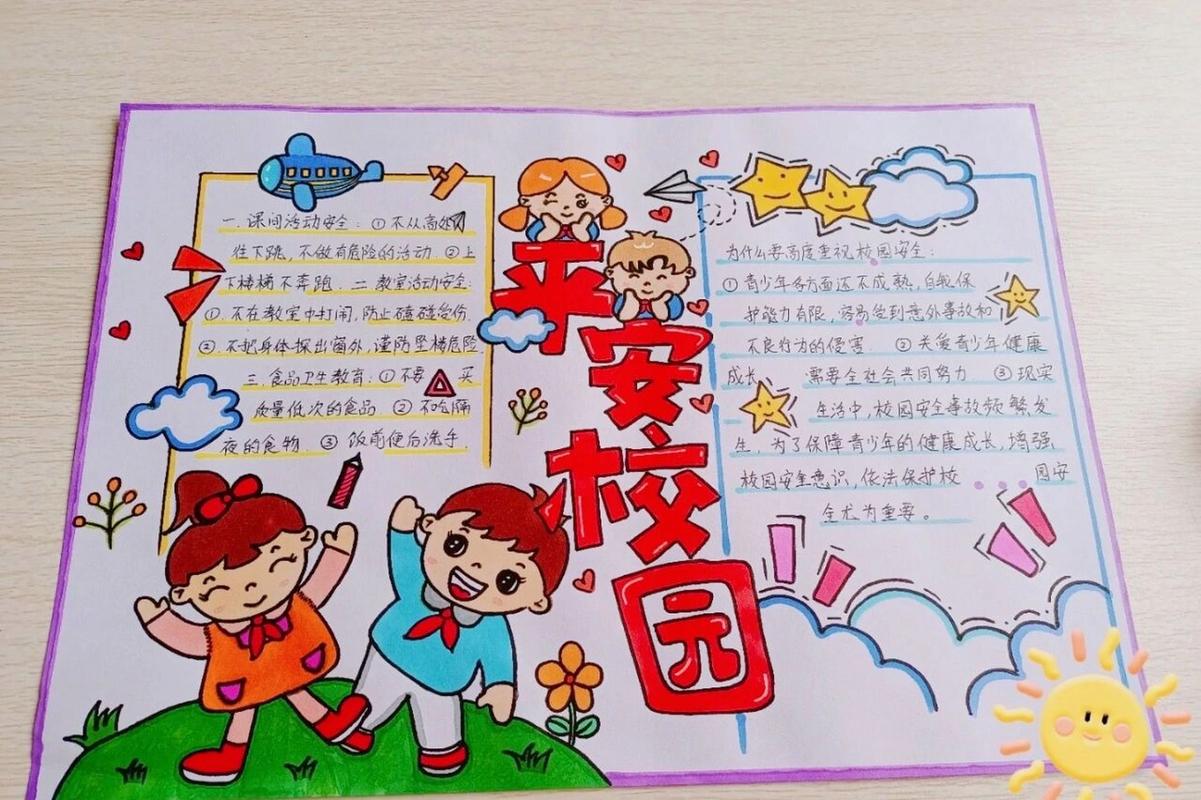 一. 课间活动安全：①不从高处
往下跳，不做有危险的活动 ②上
下楼梯不奔跑. 二 教室活动安全:
①. 不在教室中打闹, 防止磕碰受伤.
②. 不把身体探出窗外, 谨防坠楼危险.
三. 食品卫生教育：①不要 买
质量低次的食品 ②不吃隔
夜的食物. ③ 饭前便后洗手.
平
安
校
园
为什么要高度重视校园安全：
①青少年各方面还不成熟, 自我保
护能力有限, 容易受到意外事故和
不良行为的侵害. ②关爱青少年健康
成长 需要全社会共同努力 ③现实
生活中, 校园安全事故频繁发
生. 为了保障青少年的健康成长, 增强
校园安全意识, 依法保护校 园安
全尤为重要。